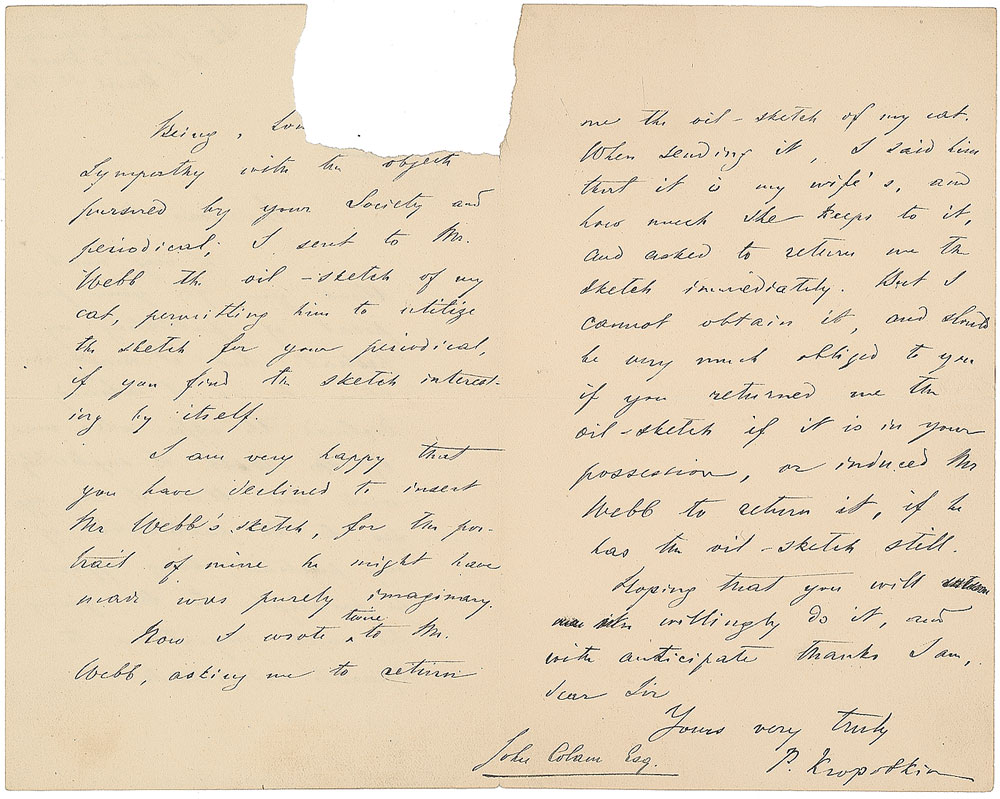 Being,
sympathy with the objects
pursued by your Society and
periodical, I sent to Mr.
Webb the oil-sketch of my
cat, permitting him to utilize
the sketch for your periodical,
if you find the sketch interest-
ing by itself.
I am very happy that
you have declined to insert
Mr Webb's sketch, for the por-
trait of mine he might have
made was purely imaginary.
Now I wrote twice to Mr.
Webb, asking me to return
me the oil-sketch of my cat.
When sending it, I said him
that it is my wife's, and
how much she keeps to it,
and asked to return me the
sketch immediately. But I
cannot obtain it, and should
be very much obliged to you
if you returned me the
oil-sketch if it is in your
possession, or induced Mr
Webb to return it, if he
has the oil-sketch still.
Hoping that you will
willingly do it, and
with anticipate thanks I am,
dear Sir
Yours very truly
P. Kropotkin
John Colam Esq.